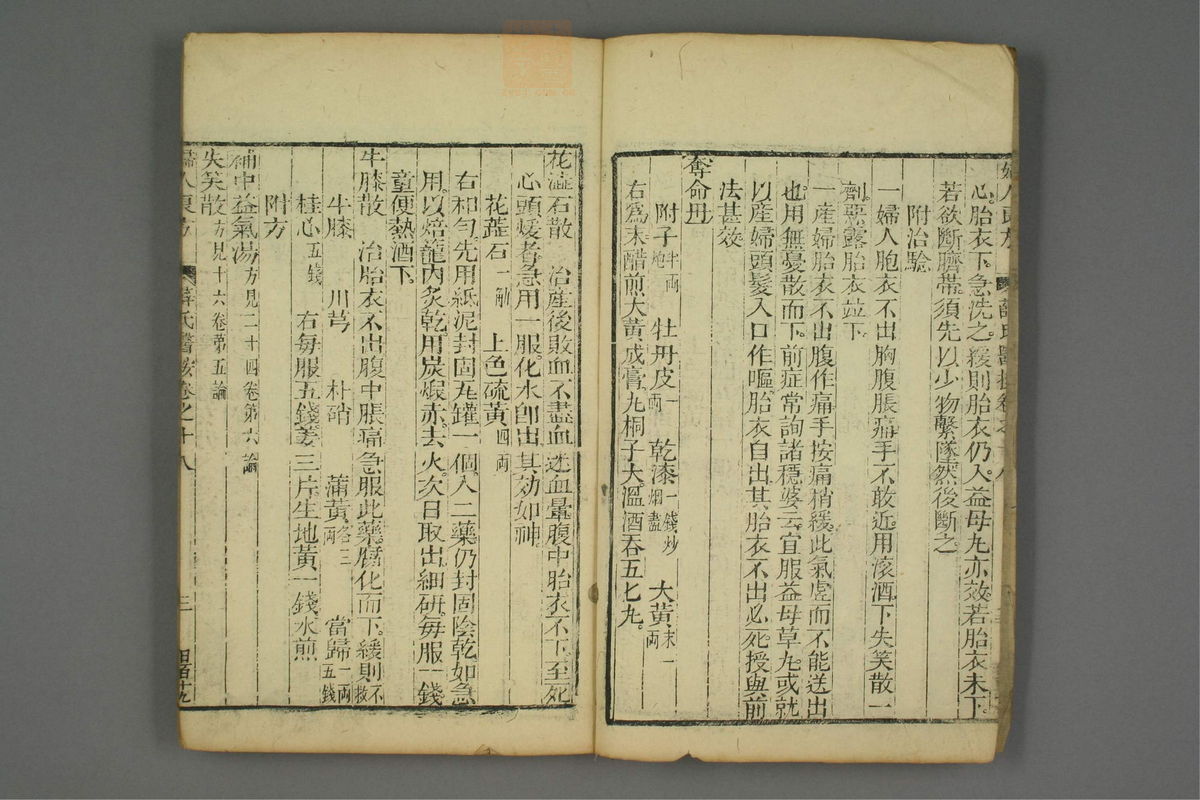 心胎衣下急洗之緩則胎衣仍入益母丸亦效若胎衣未下
若欲斷臍帶須先以少物繫墜然後斷之
附治驗
一婦人胞衣不出胸腹脹痛手不敢近用滾酒下失笑散一
劑惡露胎衣竝下
一產婦胎衣不出腹作痛手按痛稍緩此氣虛而不能送出
也用無憂散而下前症常詢諸穩婆云宜服益母草丸或就
以產婦頭髮入口作嘔胎衣自出其胎衣不出必死授與前
法甚效
奪命丹
附子半兩炮 牡丹皮一兩 乾漆一錢炒烟盡 大黃末一兩
右爲末醋煎大黃成膏丸桐子大溫酒吞五七丸
花蕊石散 治產後敗血不盡血迷血暈腹中胎衣不下至死
心頭煖者急用一服化水卽出其効如神
花蕋石一觔 上色硫黃四兩
右和勻先用紙泥封固瓦罐一個入二藥仍封固陰乾如急
用以焙籠內炙乾用炭煆赤去火次日取出細研每服一錢
童便熱酒下
牛膝散 治胎衣不出腹中脹痛急服此藥腐化而下緩則不救
牛膝 川芎 朴硝 蒲黃各三兩 當歸一兩五錢
桂心五錢 右每服五錢姜三片生地黃一錢水煎
附方
補中益氣湯方見二十四卷第六論
失笑散方見十六卷第五論
婦人良方 薛氏醫按卷之十八 三